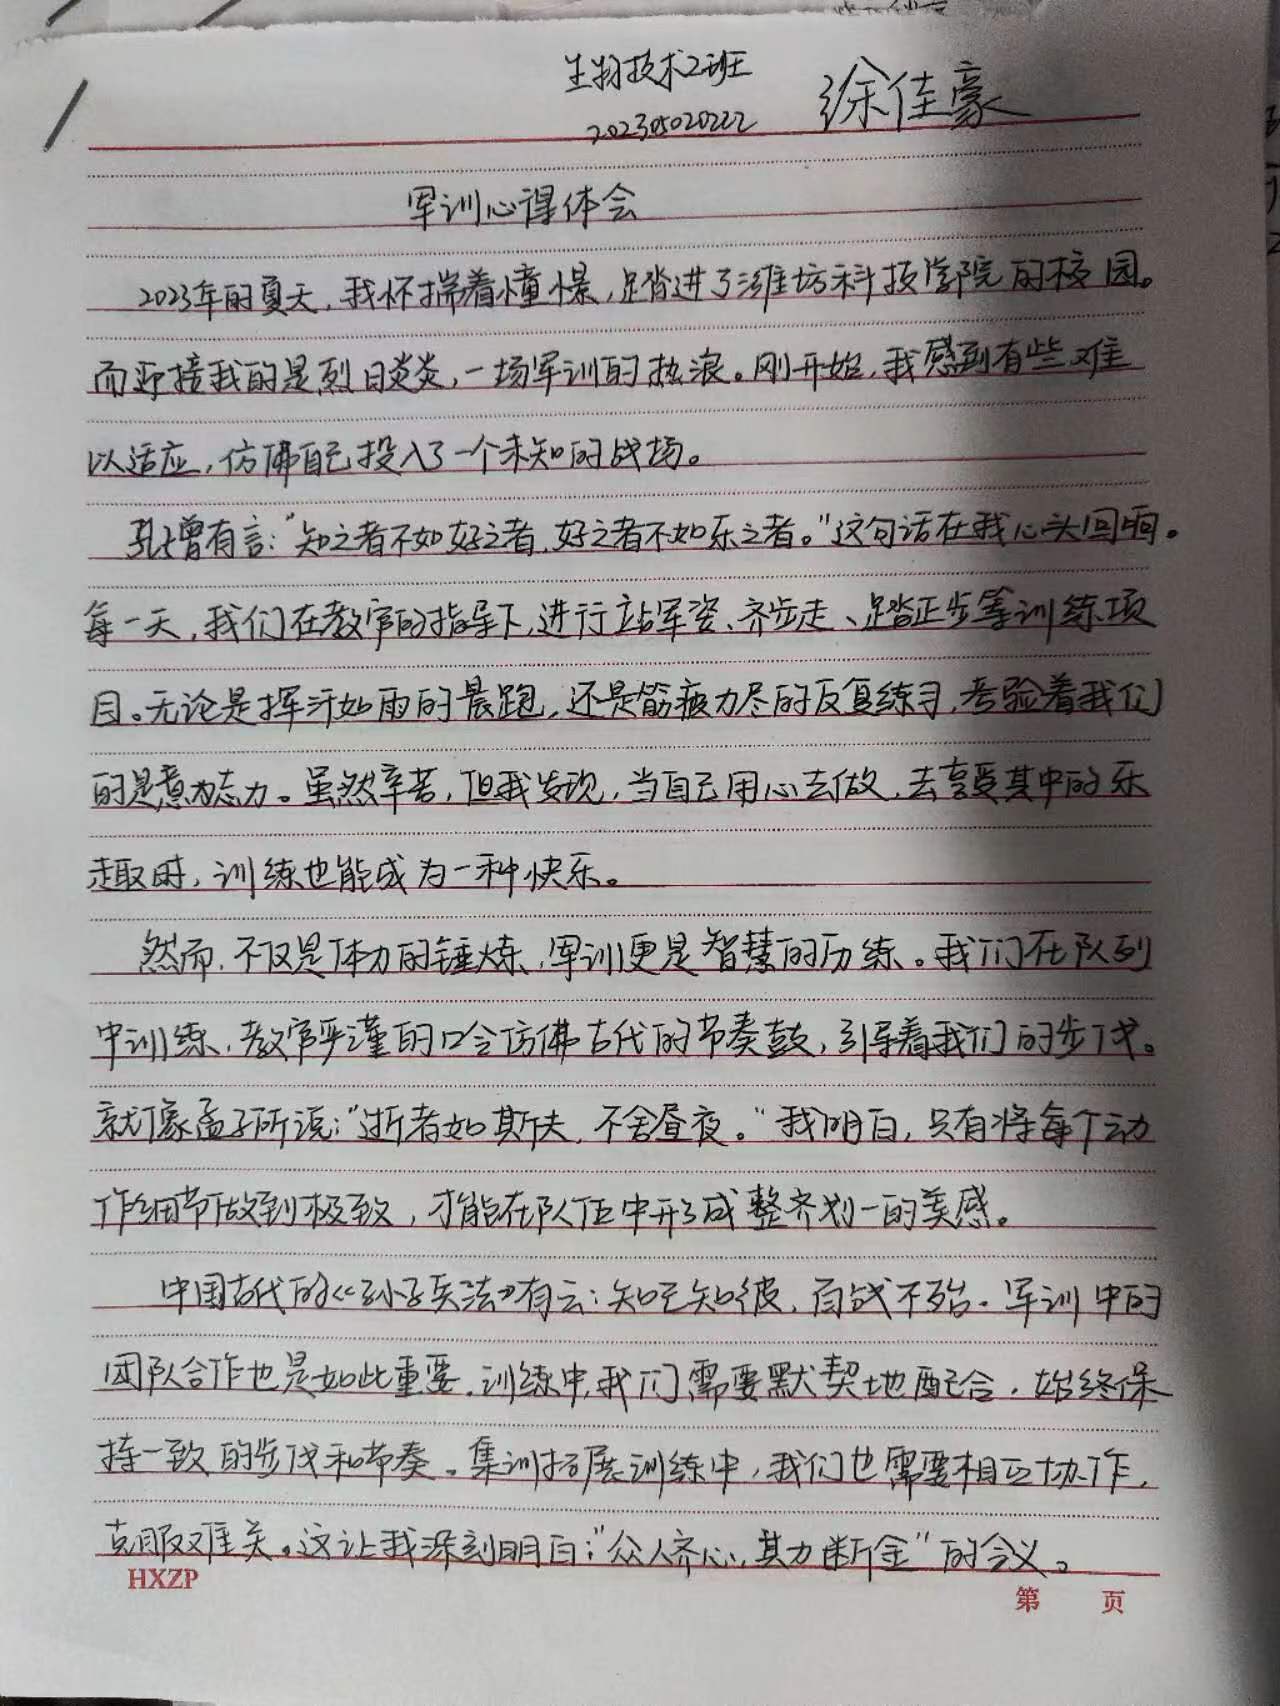 生物技术2班
徐佳豪
202305020222
军训心得体会
2023年的夏天,我怀揣着憧憬,踏进了潍坊科技学院的校园。
而迎接我的是烈日炎炎,一场军训的热浪。刚开始,我感到有些难
以适应,仿佛自己投入了一个未知的战场。
孔子曾有言:“知之者不如好之者,好之者不如乐之者。”这句话在我心头回响。
每一天,我们在教官的指导下,进行站军姿、齐步走、踏正步等训练项
目。无论是挥汗如雨的晨跑,还是筋疲力尽的反复练习,考验着我们
的是意志力。虽然辛苦,但我发现,当自己用心去做,去享受其中的乐
趣时,训练也能成为一种快乐。
然而,不仅是体力的锤炼,军训更是智慧的历练。我们在队列
中训练,教官严谨的口令仿佛古代的节奏鼓,引导着我们的步伐。
就像孟子所说:“逝者如斯夫,不舍昼夜。”我明白,只有将每个动
作细节做到极致,才能在队伍中形成整齐划一的美感。
中国古代的《孙子兵法》有云:知己知彼,百战不殆。军训中的
团队合作也是如此重要,训练中,我们需要默契地配合,始终保
持一致的步伐和节奏。集训拓展训练中,我们也需要相互协作,
克服难关。这让我深刻明白:“众人齐心,其力断金”的含义。
HXZP
第 页